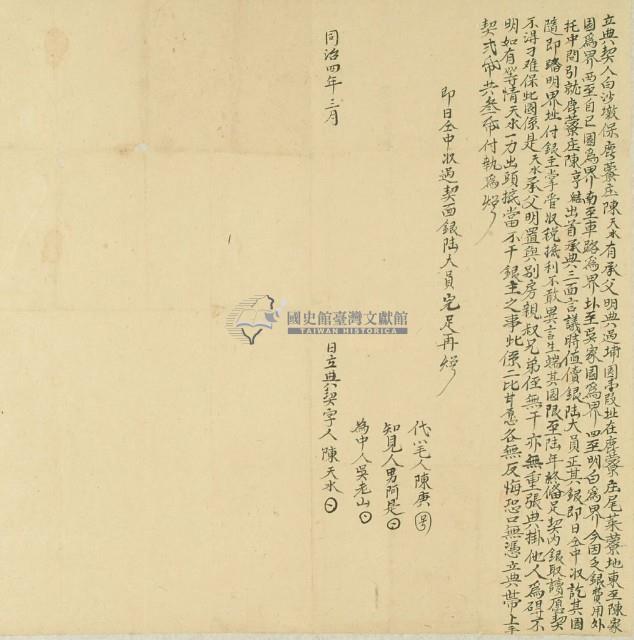 立典契人白沙墩保蔗藔庄陳天水有承父明典過埔園壹段址在蔗藔庄尾菜藔地東至陳家
園為界西至自己園為界南至車路為界北至吳家園為界四至明白為界今因乏銀費用外
托中問引就蔗藔庄陳亨出首承典三面言議時值價銀陸大員正其銀即日仝中收訖其園
隨即踏明界址付銀主掌管收稅抵利不敢異言生端其園限至陸年終備足契內銀取贖原契
不得刁难保此園係是天水承父明置與別房親叔兄弟侄無干亦無重張典掛他人為碍不
明如有等情天水一力出頭抵當不干銀主之事此係二比甘愿各無反悔恐口無憑立典契帶上手
契弍紙共叁紙付執為炤
即日仝中收過契面銀陸大員完足再炤
代筆人陳庚
知見人男阿是
為中人吳老山
同治四年三月 日立典契字人陳天水
國史館臺灣文獻館
TAIWAN HISTORICA